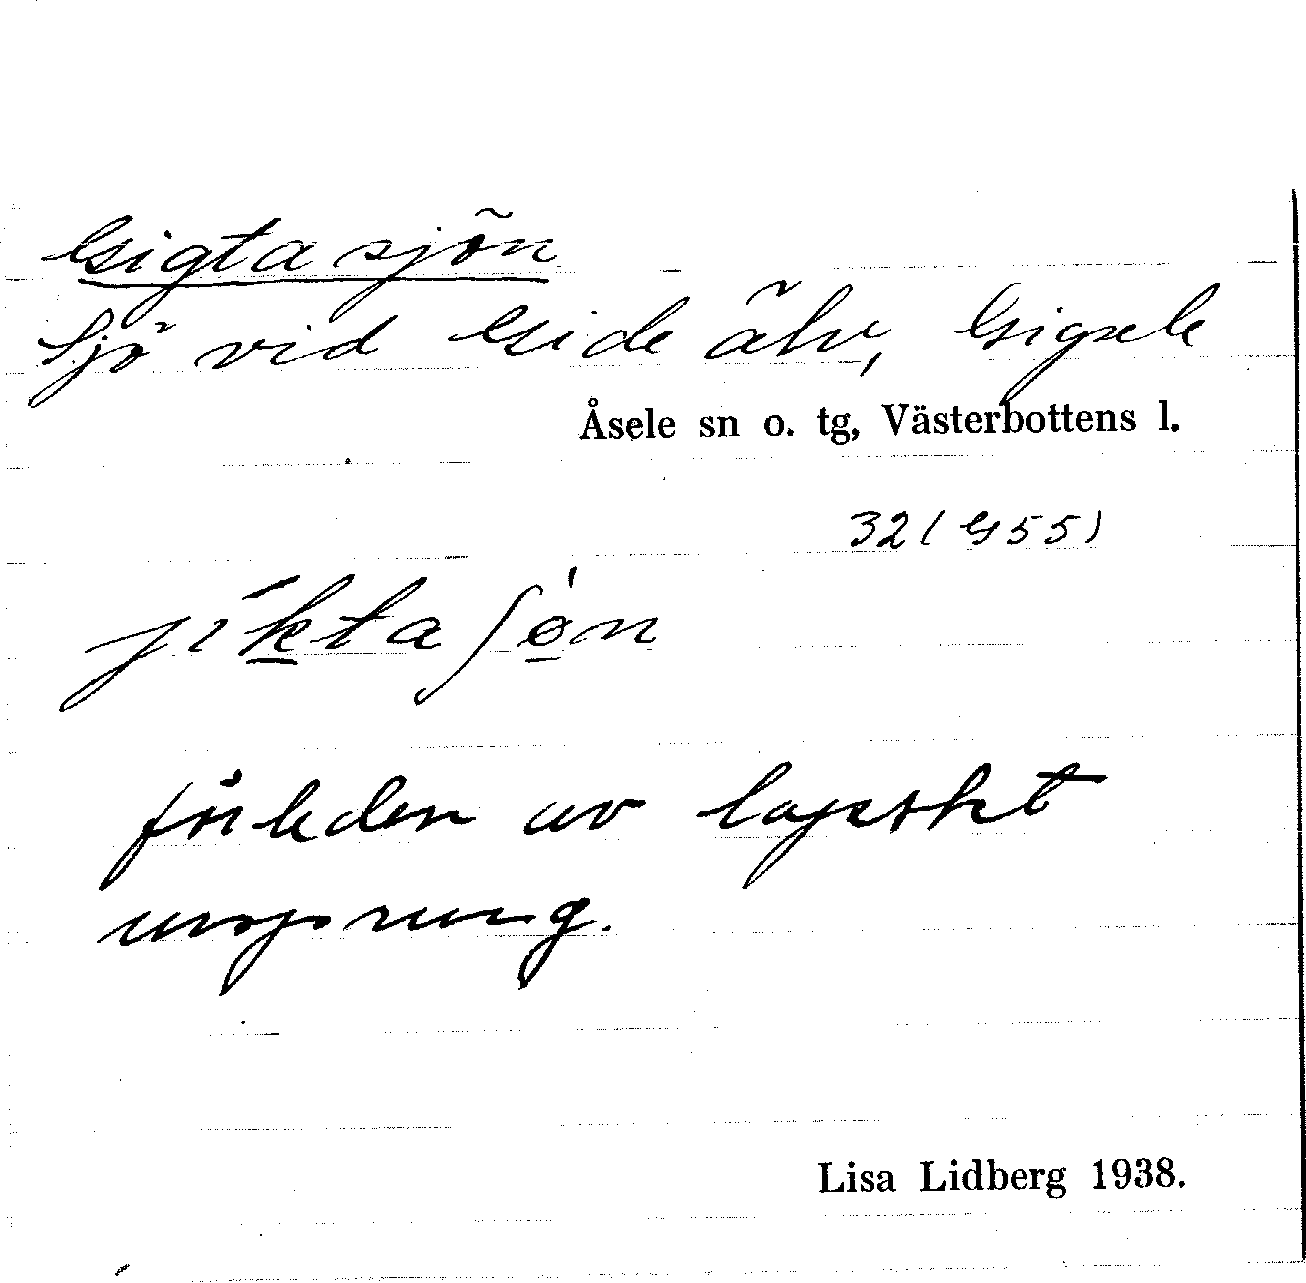 Gigtasjön
Sjö vid Gide älv, Gigsele
Åsele sn o. tg, Västerbottens l.
32 (G55)
jíktaʃø̱n
förleden av lapskt
ursprung.
Lisa Lidberg 1938.